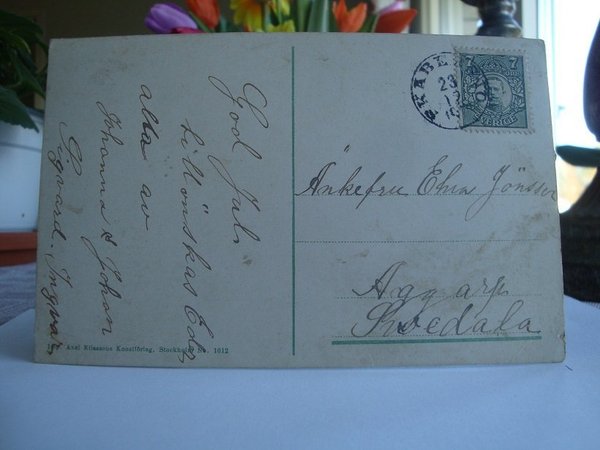 God Jul
tillönskas Eder
alla av
Johanna & Johan
Sigvard. Ingvar
Axel Eliassons Konstförlag, Stockholm No. 1612
7 7
Änkefru Elna Jönsson
Aggarp
Svedala